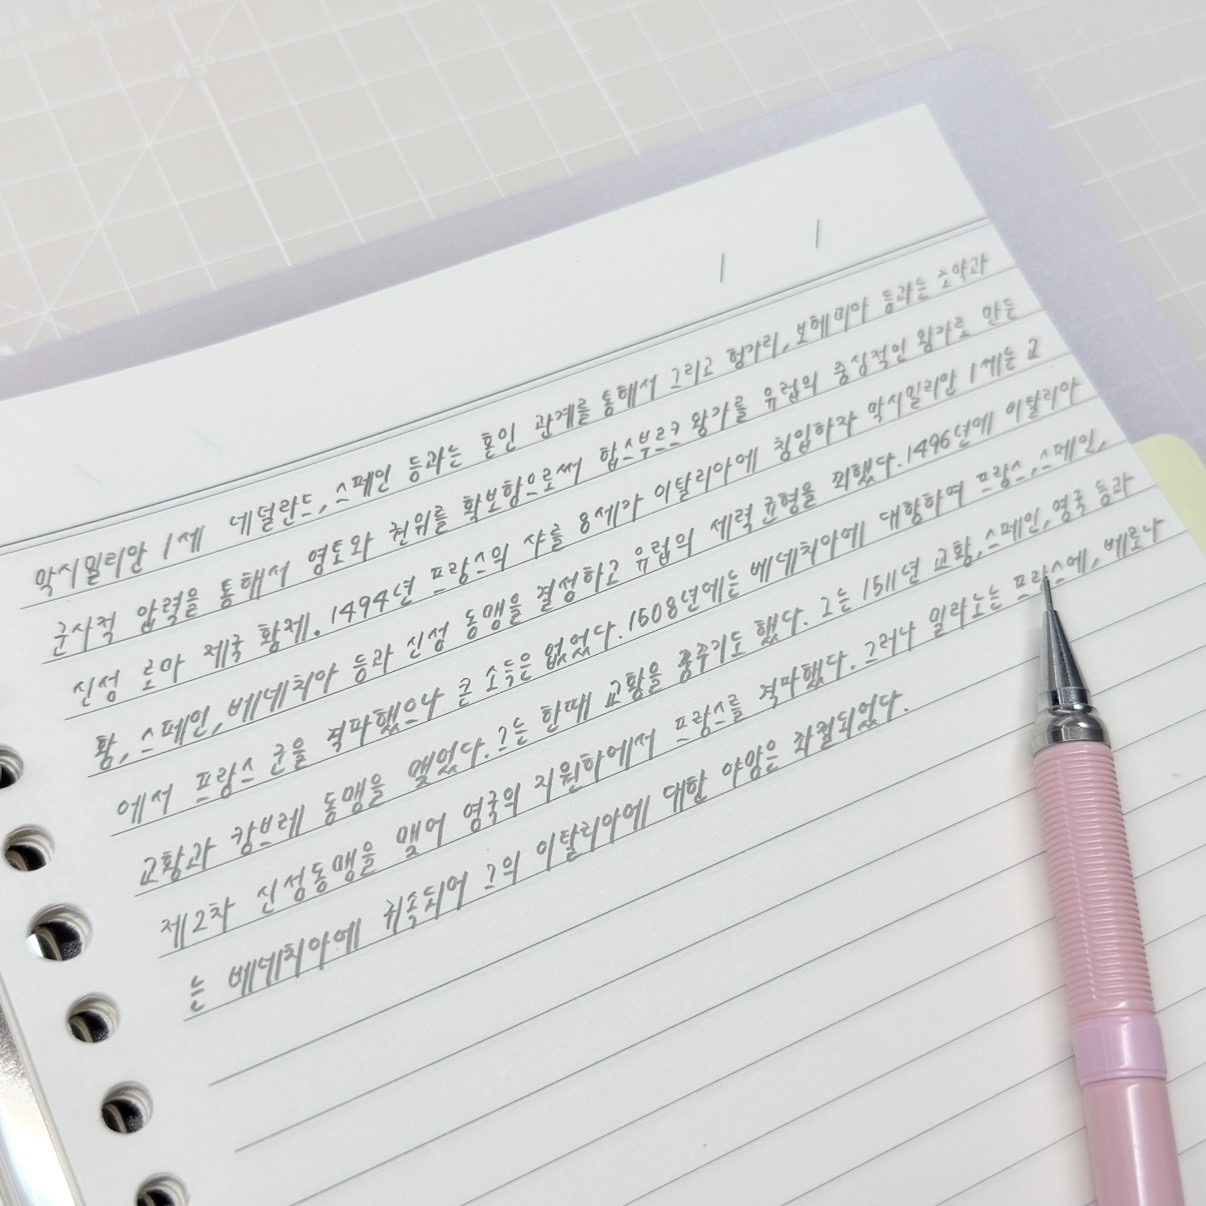 막시밀리안 1세 네덜란드,스페인 등과는 혼인 관계를 통해서 그리고 헝가리,보헤미아 등과는 조약과
군사적 압력을 통해서 영토와 권위를 확보함으로써 합스부르크 왕가를 유럽의 중심적인 왕가로 만든
신성 로마 제국 황제. 1494년 프랑스의 샤를 8세가 이탈리아에 침입하자 막시밀리안 1세는 교
황,스페인,베네치아 등과 신성 동맹을 결성하고 유럽의 세력 균형을 꾀했다.1496년에 이탈리아
에서 프랑스 군을 격파했으나 큰 소득은 없었다.1508년에는 베네치아에 대항하며 프랑스,스페인,
교황과 캉브레 동맹을 맺었다.그는 한때 교황을 꿈꾸기도 했다. 그는 1511년 교황,스페인,영국 등과
제2차 신성동맹을 맺어 영국의 지원하에서 프랑스를 격파했다. 그러나 밀라노는 프랑스에, 베로나
는 베네치아에 귀속되어 그의 이탈리아에 대한 야망은 좌절되었다.
45°